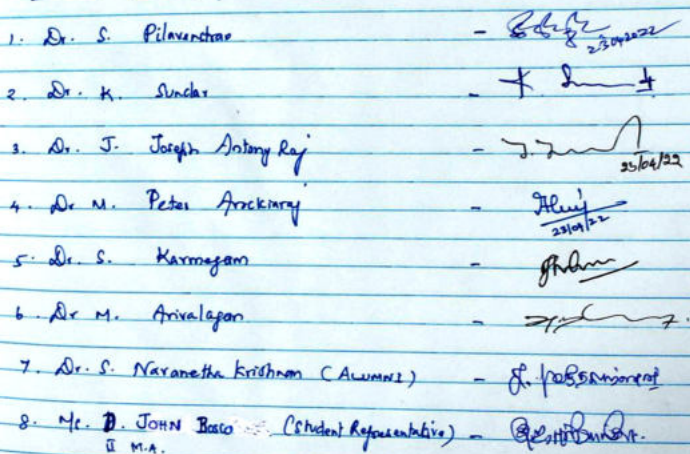 1. Dr. S. Pilavendran - 23042022
2. Dr. K. Sundar -
3. Dr. J. Joseph Antony Raj - 23/04/22
4. Dr M. Peter Arockiaraj - 23/04/22
5. Dr. S. Karmegam -
6. Dr M. Arivalagan -
7. Dr. S. Navaneetha Krishnan (ALUMNI) -
8. Mr. D. JOHN Bosco (Student Representative) -
II M.A.